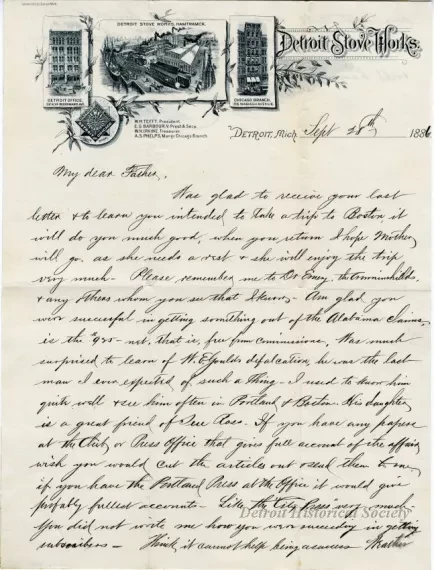 DETROIT STOVE WORKS, HAMTRAMCK.
Detroit Stove Works.
DETROIT OFFICE,
CHICAGO BRANCH,
W.H. TEFFT, President.
Treasurer.
A.S. PHELPS, Mangr Chicago Branch.
DETROIT, Mich Sept 28th 1886
My dear Father,
Was glad to receive your last
letter & to learn you intended to take a trip to Boston it
will do you much good, when you return I hope Mother
will go. as she needs a rest & she will enjoy the trip
very much - Please remember me to Dr Emery, the
& any others whom you see that I know - Am glad you
were successful in getting something out of the Alabama Claims,
is the $925 - net, that is, free from commissions, Was much
surprised to learn of W. E. Goulds defalcation, he was the last
man I ever expected of such a thing - I used to know him
quite well & see him often in Portland & Boston. His daughter
is a great friend of Rose. If you have any papers
at the Club or Press Office that gives full account of the affair
wish you would cut the articles out & send them to me
if you have the Portland Press at the Office it would give
probably fullest accounts - Like the City Press very much
You did not write me how you were succeeding in getting
subscribers - Think it cannot help being a success
Detroit Historical Society